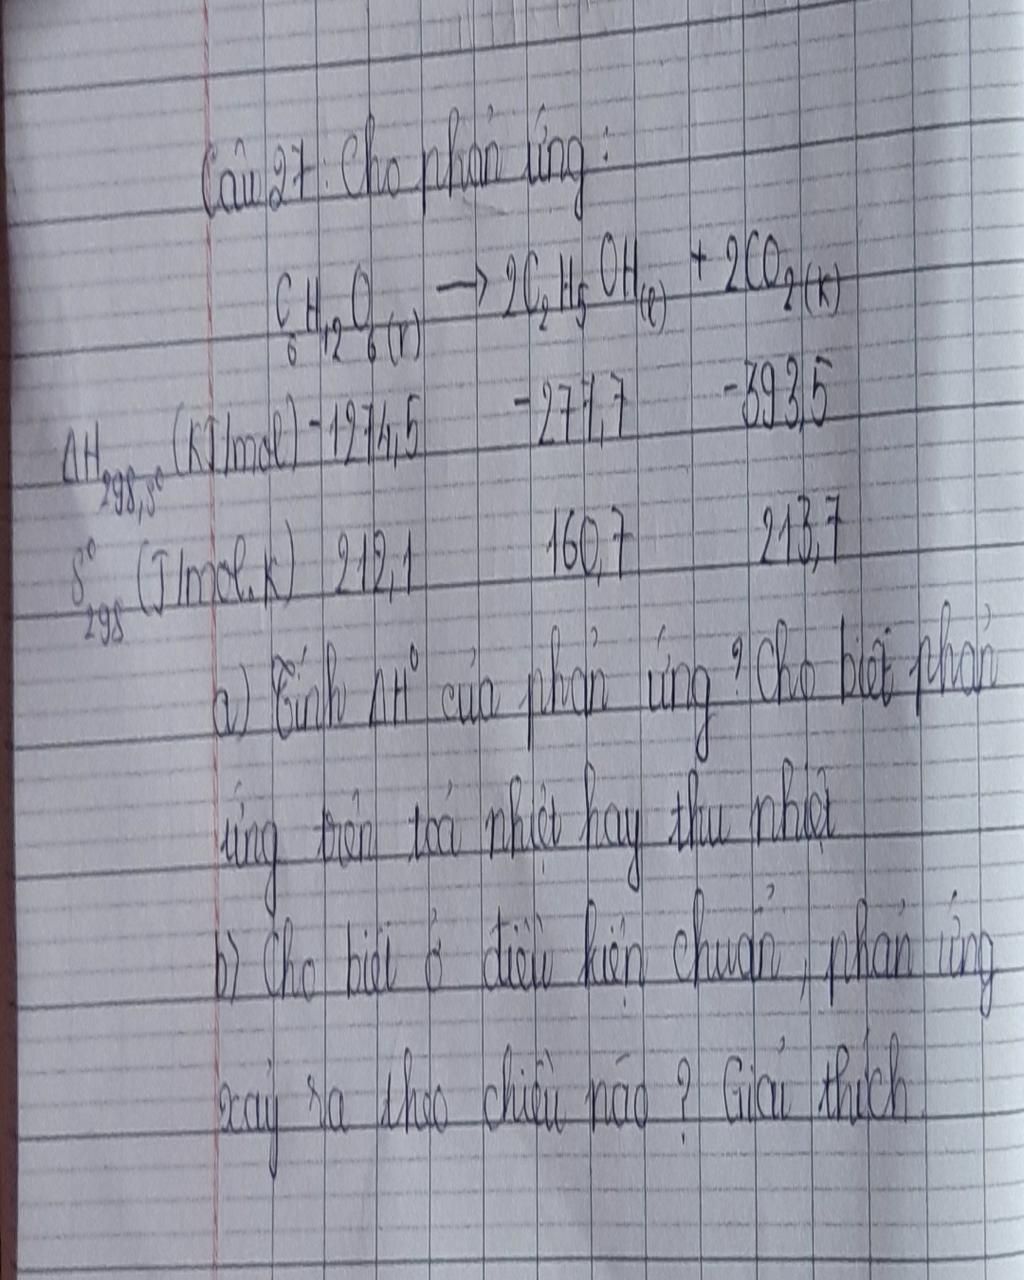 Câu 27: Cho phản ứng:
C₆H₁₂O₆(r) → 2C₂H₅OH(l) + 2CO₂(k)
ΔH₂₉₈,s⁰ (KJ/mol) -1274,5 -277,7 -393,5
S⁰₂₉₈ (J/mol.K) 212,1 160,7 213,7
a) Tính ΔH⁰ của phản ứng? Cho biết phản
ứng trên toả nhiệt hay thu nhiệt
b) Cho biết ở điều kiện chuẩn, phản ứng
xảy ra theo chiều nào? Giải thích.